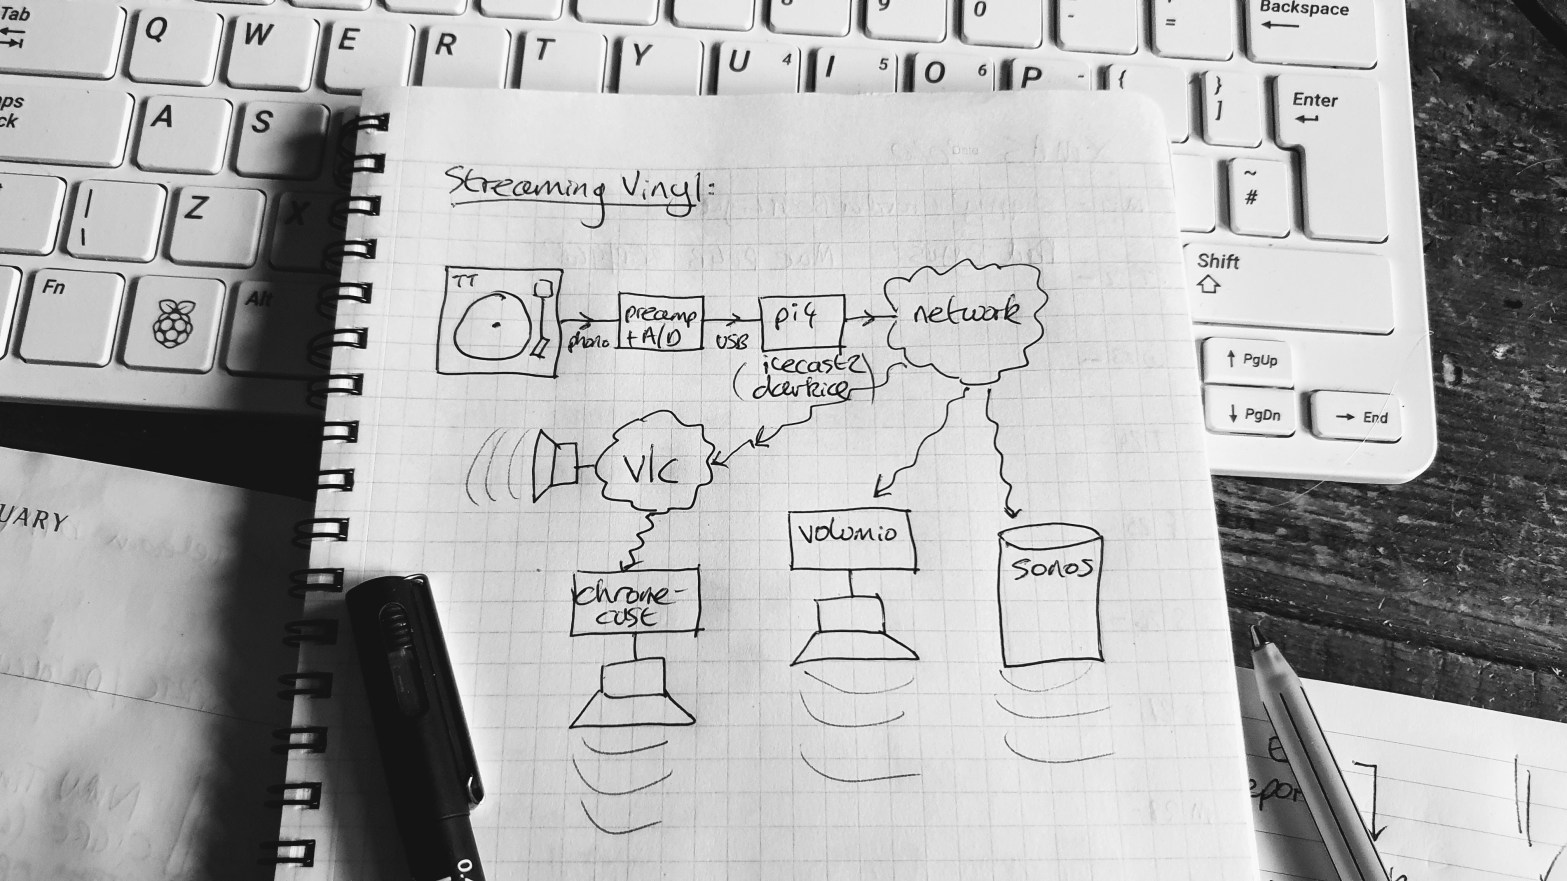 Tab
Q
W
E
R
T
Y
U 4
I 5
O 6
P -
{
}
]
8
9
0
-
=
Backspace
Enter
A
S
|
\
Z
X
~
#
Shift
Fn
Alt
PgUp
PgDn
End
Streaming Vinyl:
TT
phono
preamp
+ A/D
USB
pi4
(icecast2
darkice)
network
vlc
chrome-
cast
volumio
sonos
UARY